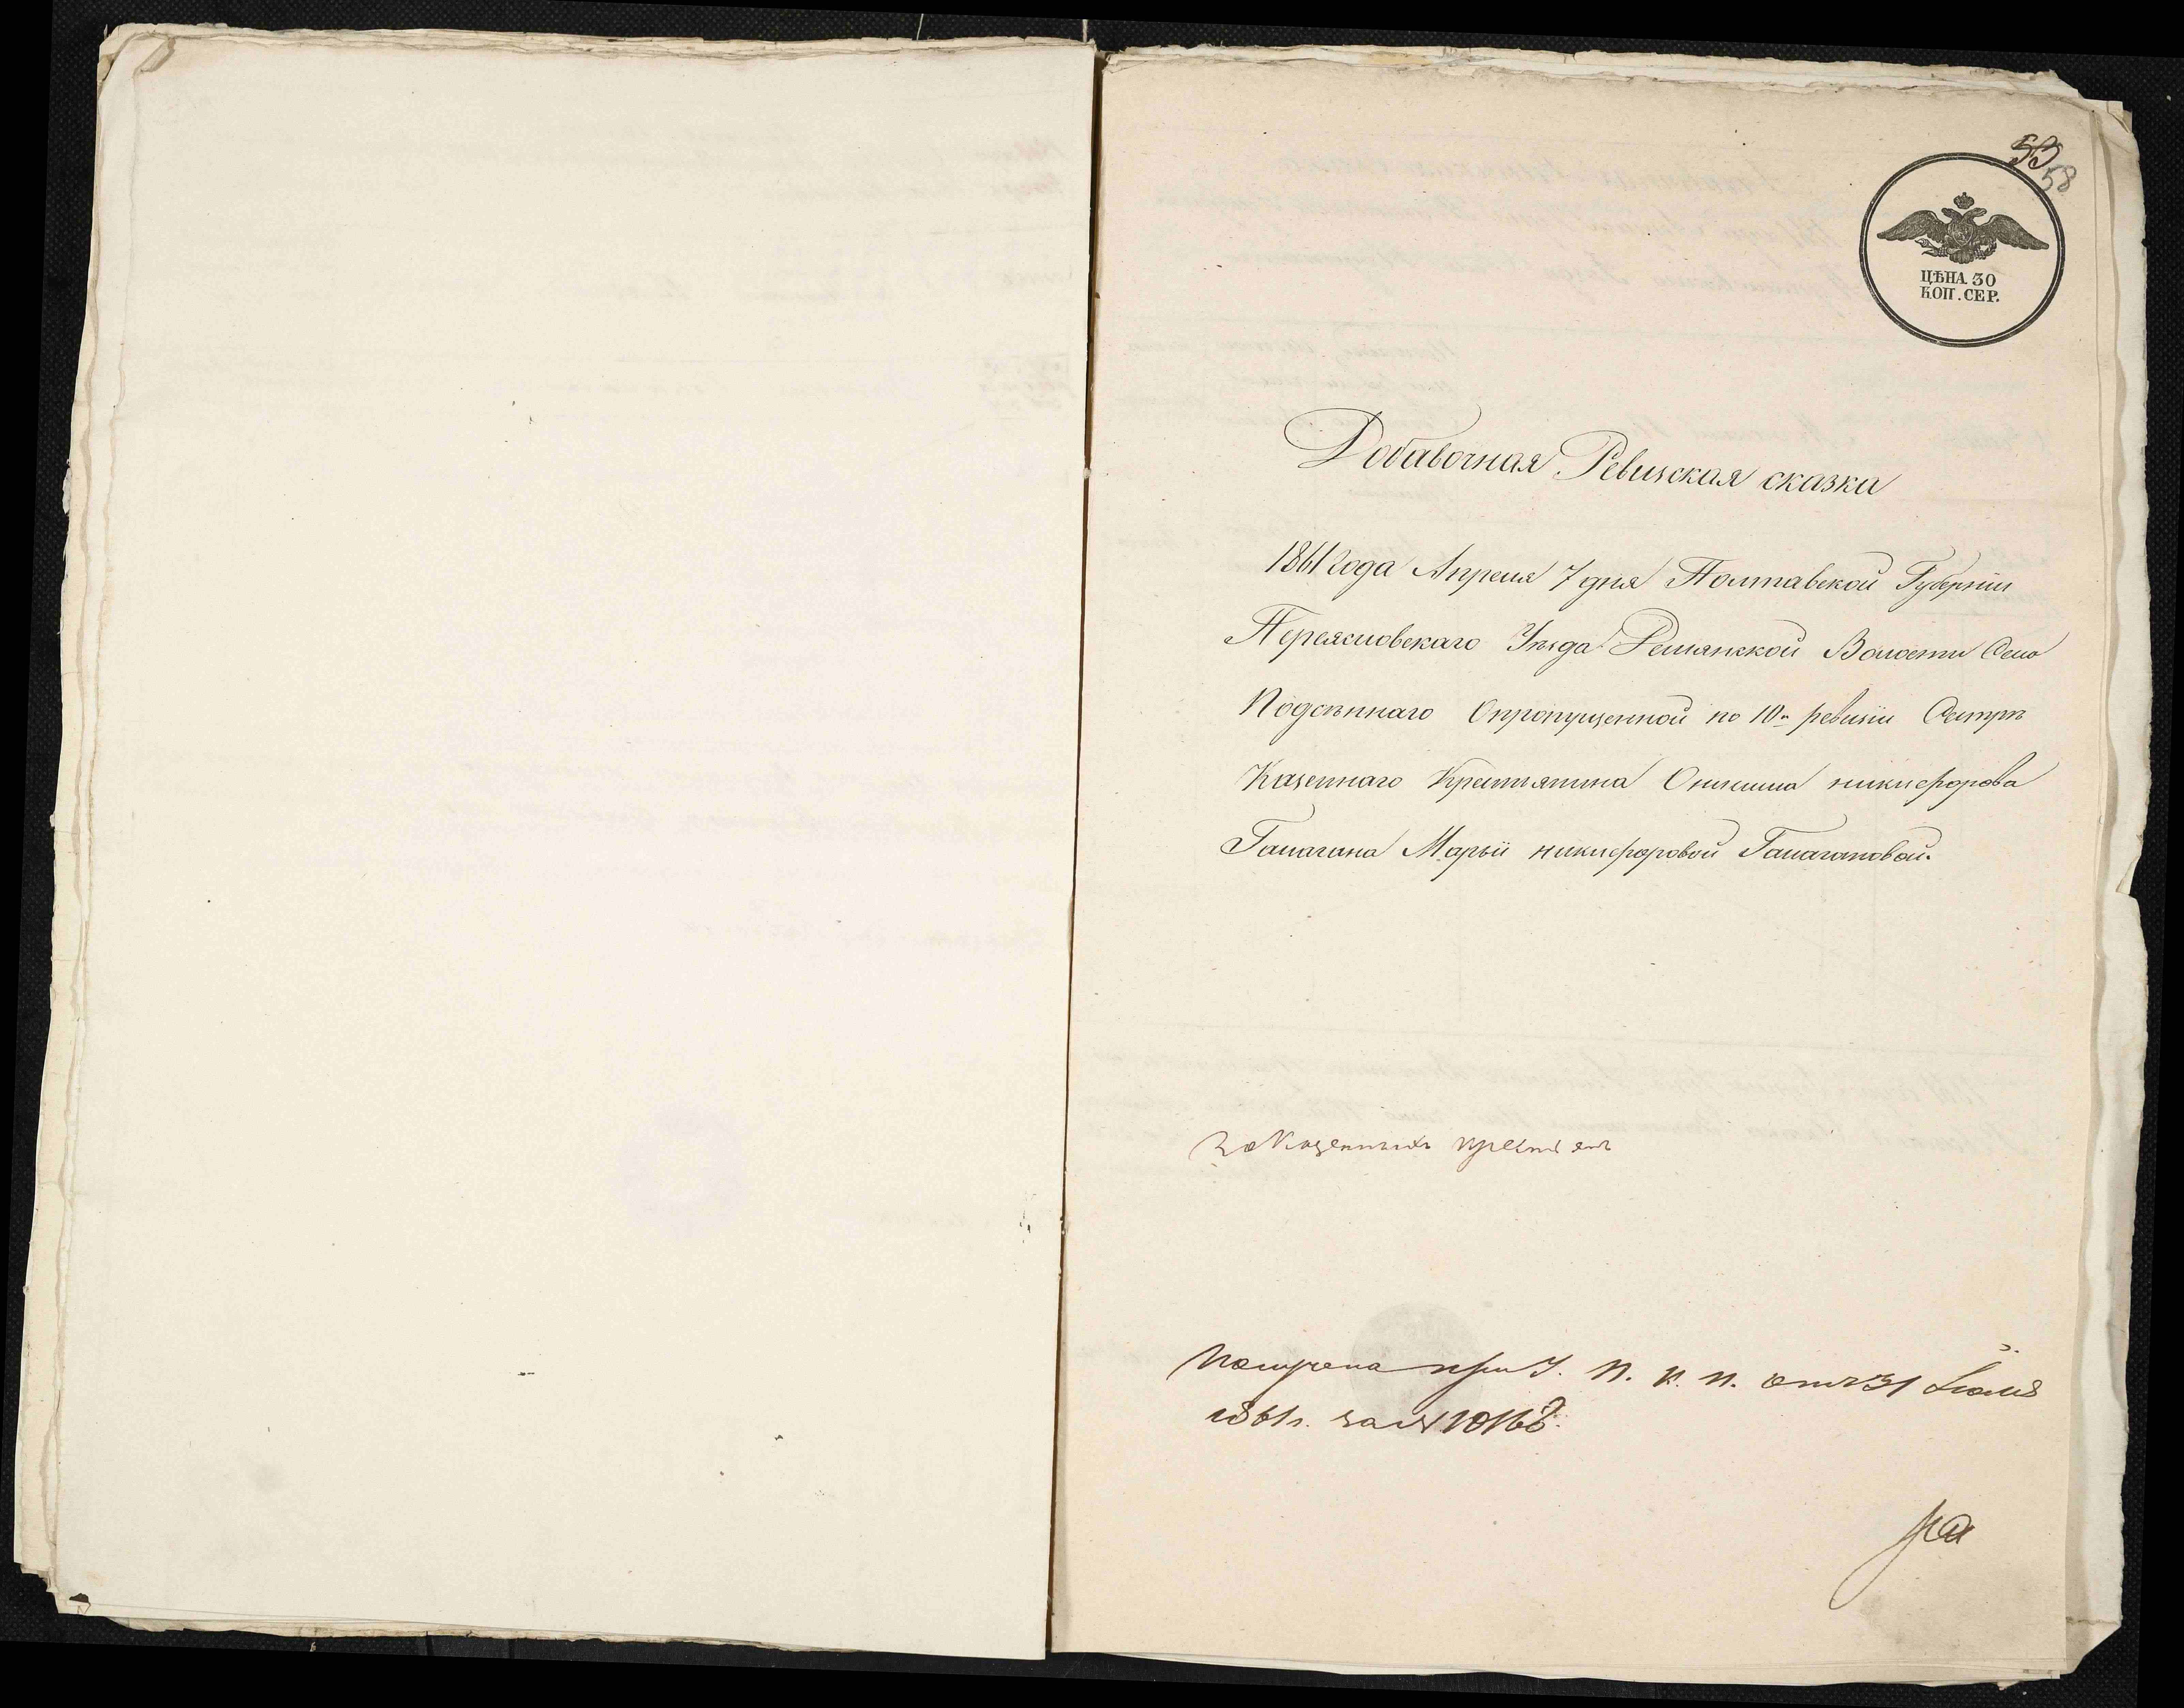 53
58
ЦѢНА 30
КОП. СЕР.
Добавочная Ревизская сказка
1861 года Апреля 7 дня Полтавской Губерніи
Переясловскаго Уѣзда Гельмязской Волости Села
Подсѣннаго Опропущенной по 10й ревизіи Сестрѣ
Казеннаго Крестьянина Онисима никифорова
Галагана Маріи никифоровой Галагановой.
Казенныхъ крестьянъ
Получена при У. П. К. П. отъ 31 Іюля
1861 г. за № 10166.